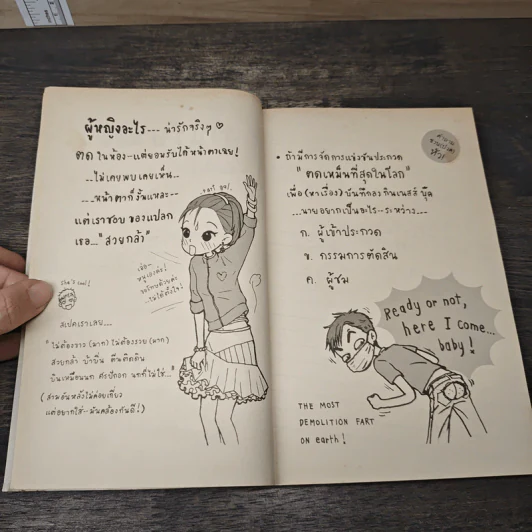 ผู้หญิงอะไร--- น่ารักจริงๆ ♡
ตด ในห้อง-แต่ยอมรับได้หน้าตาเฉย!
...ไม่เคยพบเคยเห็น...
...หน้าตาก็งั้นแหละ---
แต่เราชอบ ของแปลก
เธอ..."สวยกล้า"
She's cool!
สเปคเราเลย...
"ไม่ต้องขาว (มาก) ไม่ต้องรวย (มาก)
สวยกล้า บ้าบิ่น ตีนติดดิน
(สามอันหลังไม่ค่อยเกี่ยว
แต่อยากใส่-มันคล้องกันดี!)
• ถ้ามีการจัดการแข่งขันประกวด
"ตดเหม็นที่สุดในโลก"
เพื่อ (หาเรื่อง) บันทึกลง กินเนสส์ บุ๊ค
...นายอยากเป็นอะไร-ระหว่าง---
ก. ผู้เข้าประกวด
ข. กรรมการตัดสิน
ค. ผู้ชม
Ready or not,
here I come...
baby!
THE MOST
DEMOLITION FART
ON earth!